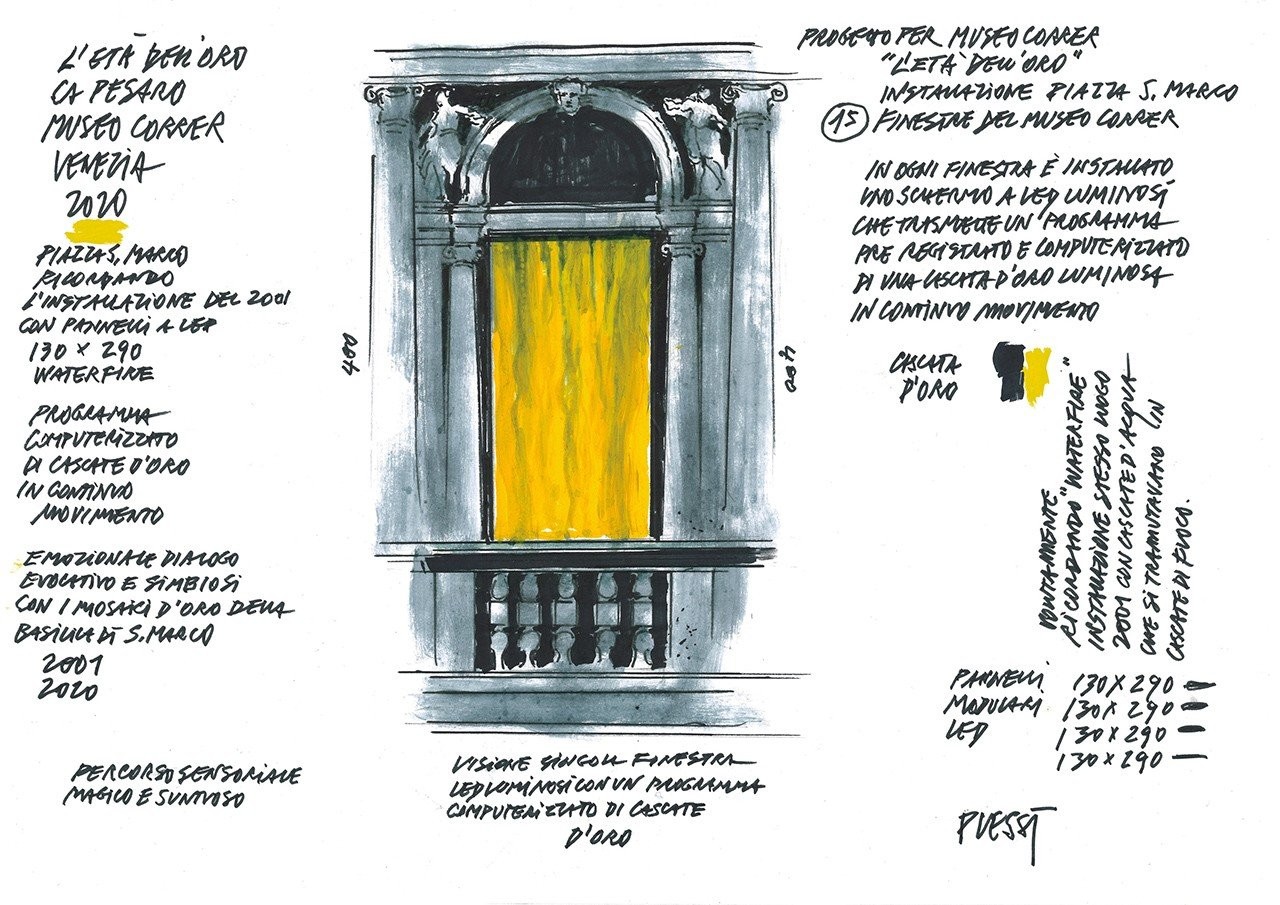 L'ETÀ DELL'ORO
CA PESARO
MUSEO CORRER
VENEZIA
2020
PIAZZA S. MARCO
RICORDANDO
L'INSTALLAZIONE DEL 2001
CON PANNELLI A LED
130 × 290
WATERFIRE
PROGRAMMA
COMPUTERIZZATO
DI CASCATE D'ORO
IN CONTINUO
MOVIMENTO
EMOZIONALE DIALOGO
EVOCATIVO E SIMBIOSI
CON I MOSAICI D'ORO DELLA
BASILICA DI S. MARCO
2001
2020
PERCORSO SENSORIALE
MAGICO E SUNTUOSO
400
400
VISIONE SINGOLA FINESTRA
LED LUMINOSI CON UN PROGRAMMA
COMPUTERIZZATO DI CASCATE
D'ORO
PROGETTO PER MUSEO CORRER
"L'ETÀ DELL'ORO"
INSTALLAZIONE PIAZZA S. MARCO
15 FINESTRE DEL MUSEO CORRER
IN OGNI FINESTRA È INSTALLATO
UNO SCHERMO A LED LUMINOSI
CHE TRASMETTE UN PROGRAMMA
PRE REGISTRATO E COMPUTERIZZATO
DI UNA CASCATA D'ORO LUMINOSA
IN CONTINUO MOVIMENTO
CASCATA
D'ORO
VOLUTAMENTE
RICORDANDO "WATERFIRE"
INSTALLAZIONE STESSO LUOGO
2001 CON CASCATE D'ACQUA
CHE SI TRAMUTAVANO IN
CASCATE DI FUOCO.
PANNELLI 130 X 290
MODULARI 130 X 290
LED 130 X 290
130 X 290
PLESSI